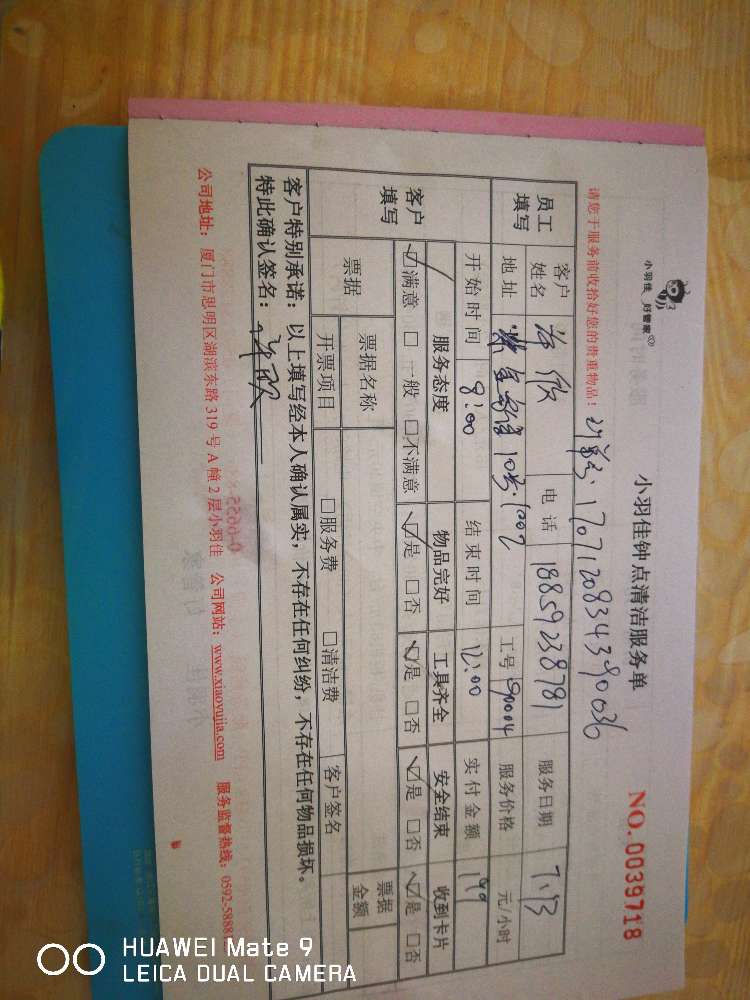 小羽佳 好管家
小羽佳钟点清洁服务单
NO.0039718
请您于服务前收拾好您的贵重物品!
员工填写
客户姓名
电话 18859238781
服务日期 7.13
地址 10号.1002
工号 90004
服务价格 元/小时
开始时间 8:00
结束时间 12:00
实付金额
客户填写
服务态度 物品完好 工具齐全 安全结束 收到卡片
☑满意 □一般 □不满意 ☑是 □否 ☑是 □否 ☑是 □否 ☑是 □否
票据 票据名称 票据金额
开票项目 □服务费 □清洁费 客户签名
客户特别承诺: 以上填写经本人确认属实,不存在任何纠纷,不存在任何物品损坏。
特此确认签名:
公司地址: 厦门市思明区湖滨东路319号A幢2层小羽佳 公司网站: www.xiaoyujia.com 服务监督热线: 0592-5888
HUAWEI Mate 9
LEICA DUAL CAMERA